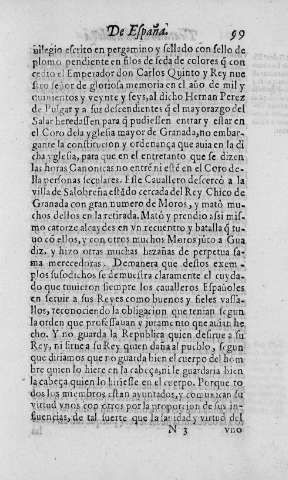 De España. 99
uilegio escrito en pergamino y sellado con sello de
plomo pendiente en filos de seda de colores q̃ con
cedio el Emperador don Carlos Quinto y Rey nue
stro señor de gloriosa memoria en el año de mil y
quinientos y veynte y seys, al dicho Hernan Perez
de Pulgar y a sus descendientes q̃ el mayorazgo del
Salar heredassen para q̃ pudiessen entrar y estar en
el Coro dela yglesia mayor de Granada, no embar-
gante la constitucion y ordenança que auia en la di
cha yglesia, para que en el entretanto que se dizen
las horas Canonicas no entrẽ ni estẽ en el Coro de-
lla personas seculares. Este Cauallero descercó a la
villa de Salobreña estãdo cercada del Rey Chico de
Granada con gran numero de Moros, y mató mu
chos dellos en la retirada. Mató y prendio assi mis
mo catorze alcaydes en vn recuentro y batalla q̃ tu
uo cõ ellos, y con otros muchos Moros jũto a Gua
diz, y hizo otras muchas hazañas de perpetua fa
ma merecedoras. Demanera que destos exem-
plos susodichos se demuestra claramente el cuyda-
do que tuuieron siempre los caualleros Españoles
en seruir a sus Reyes como buenos y fieles vassa-
llos, reconociendo la obligacion que tenian segun
la orden que professauan y juramento que auian he
cho. Y no guarda la Republica quien desirue a su
Rey, ni sirue a su Rey quien daña al pueblo, segun
que diriamos que no guarda bien el cuerpo del hom
bre quien lo hiere en la cabeça, ni le guardaria bien
la cabeça quien lo hiriesse en el cuerpo. Porque to
dos los miembros estan ayuntados, y comunican su
virtud vnos con otros por la proporcion de sus in-
fluencias, de tal suerte que la sanidad y virtud del
N 3 vno